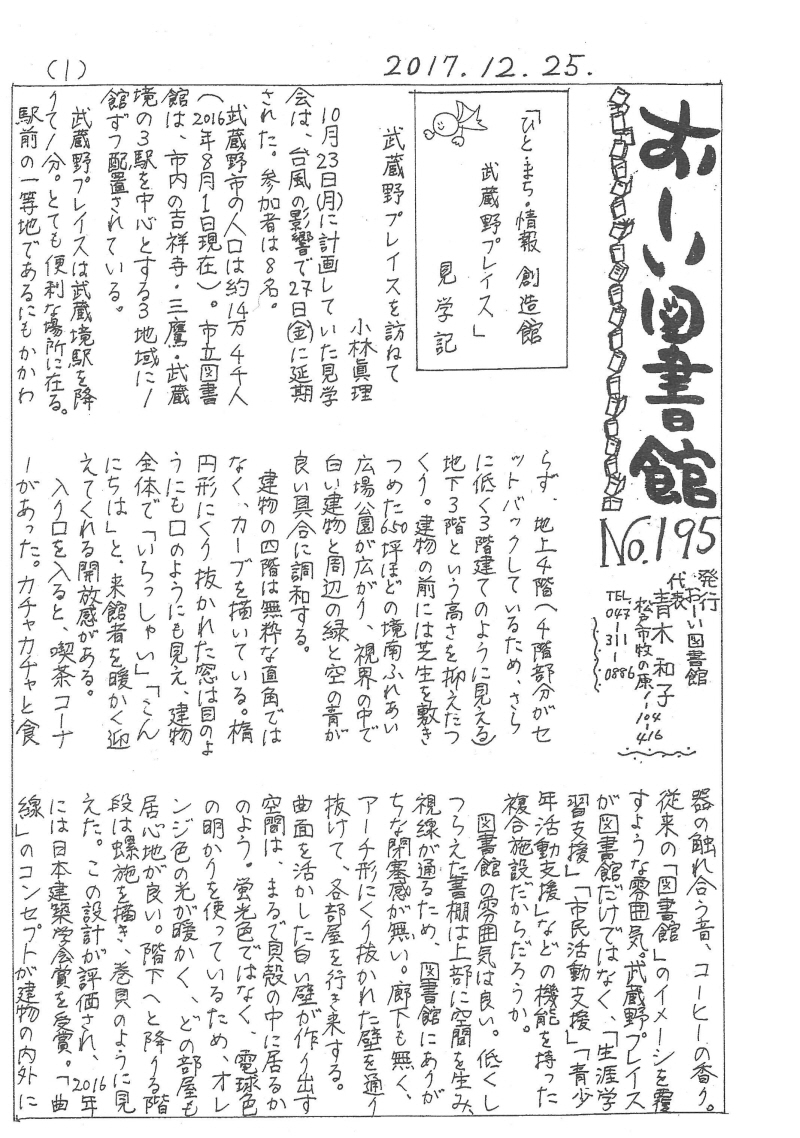 (1)
2017.12.25.
おーい図書館
No.195
発行
おーい図書館
代表
青木和子
松戸市牧の原1-104-416
TEL
047-311-0886
「ひと・まち・情報 創造館
武蔵野プレイス」
見学記
武蔵野プレイスを訪ねて
小林眞理
10月23日(月)に計画していた見学
会は、台風の影響で27日(金)に延期
された。参加者は8名。
武蔵野市の人口は約14万4千人
(2016年8月1日現在)。市立図書
館は、市内の吉祥寺・三鷹・武蔵
境の3駅を中心とする3地域に1
館ずつ配置されている。
武蔵野プレイスは武蔵境駅を降
りて1分。とても便利な場所に在る。
駅前の一等地であるにもかかわ
らず、地上4階へ4階部分がセ
ットバックしているため、さら
に低く3階建てのように見える)
地下3階という高さを抑えたつ
くり。建物の前には芝生を敷き
つめた650坪ほどの境南ふれあい
広場公園が広がり、視界の中で
白い建物と周辺の緑と空の青が
良い具合に調和する。
建物の四階は無粋な直角では
なく、カーブを描いている。楕
円形にくり抜かれた窓は目のよ
うにも口のようにも見え、建物
全体で「いらっしゃい」「こん
にちは」と、来館者を暖かく迎
えてくれる開放感がある。
入り口を入ると、喫茶コーナ
ーがあった。カチャカチャと食
器の触れ合う音、コーヒーの香り。
従来の「図書館」のイメージを覆
すような雰囲気。武蔵野プレイス
が図書館だけではなく、「生涯学
習支援」「市民活動支援」「青少
年活動支援」などの機能を持った
複合施設だからだろうか。
図書館の雰囲気は良い。低くし
つらえた書棚は上部に空間を生み、
視線が通るため、図書館にありが
ちな閉塞感が無い。廊下も無く、
アーチ形にくり抜かれた壁を通り
抜けて、各部屋を行き来する。
曲面を活かした白い壁が作り出す
空間は、まるで貝殻の中に居るか
のよう。蛍光色ではなく、電球色
の明かりを使っているため、オレ
ンジ色の光が暖かく、どの部屋も
居心地が良い。階下へと降りる階
段は螺旋を描き、巻貝のように見
えた。この設計が評価され、2016年
には日本建築学会賞を受賞。「曲
線」のコンセプトが建物の内外に